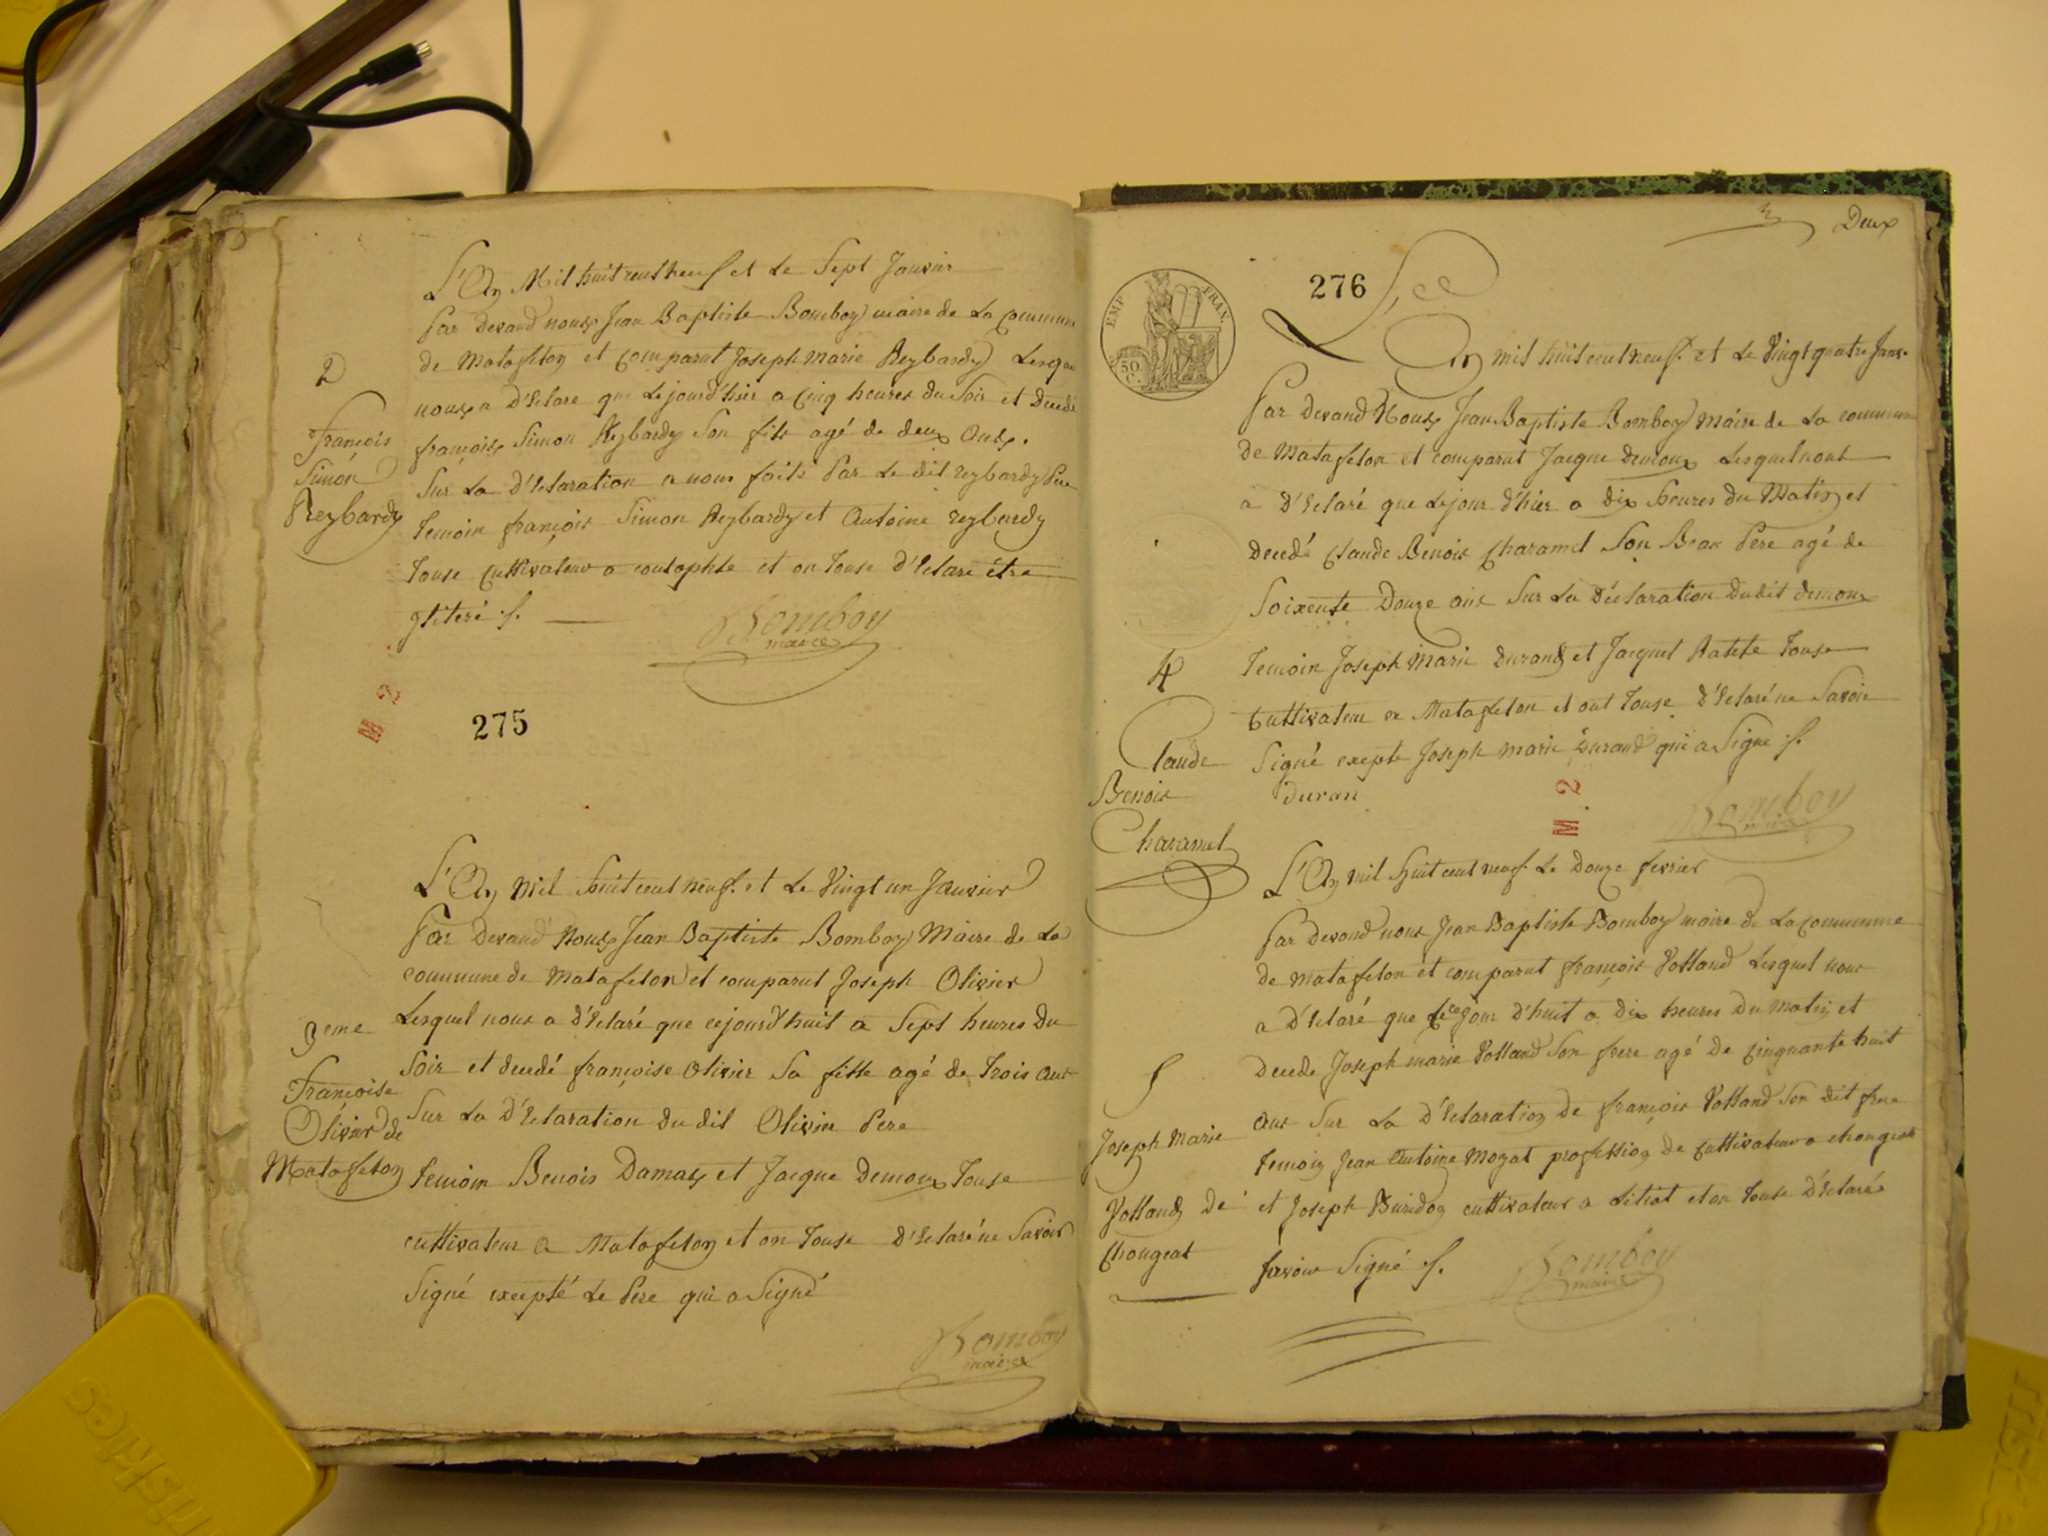 L'An Mil huit cent neuf et Le Sept Janvier
Par Devand nous Jean Baptiste Bomboy maire de La Commune
de Matafelon et comparut Joseph Marie Reybardy Lesque
nous a D'éclaré que Le jourd'hier a Cinq heures du Soir et Decedé
françois Simon Reybardy Son fils agé de deux Ans.
Sur La D'éclaration a nous faite Par Le dit reybardy Pere
Temoin françois Simon Reybardy et Antoine reybardy
Touse Cultivateur a et on Touse D'éclaré étre
Bomboy
maire
2
François
Simon
Reybardy
M 2
275
L'An Mil huit cent neuf. et Le Vingt un Janvier
Par Devand Nous Jean Baptiste Bomboy Maire de La
commune de Matafelon et comparut Joseph Olivier
Lesquel nous a D'éclaré que cejourd'huit a Sept heures Du
Soir et decedé françoise Olivier Sa fille agé de Trois ans
Sur La D'éclaration Du dit Olivier Pere
Temoin Benois Damas et Jacque Demoux Touse
cultivateur a Matafelon et on Touse D'éclaré ne Savoir
Signé excepté Le Pere qui a Signé
Bomboy
maire
3eme
Françoise
Olivier de
Matafelon
Deux
276
EMP. FRAN.
50
C.
An mil huit cent neuf. et Le Vingt quatre Janv.
Par Devand Nous Jean Baptiste Bomboy Maire de La commune
De Matafelon et comparut Jacque Demoux Lesquel nous
a D'éclaré que Le jour d'hier a dix heures du Matin et
decedé Claude Benois Charamel Son Beau Pere agé de
Soixente Douze ans Sur La Déclaration Du dit demoux
Temoin Joseph Marie Durand et Jacquel Touse
Cultivateur a Matafelon et ont Touse D'éclaré ne Savoir
Signé excepte Joseph Marie Durand qui a Signe
duran
M. 2
Bomboy
maire
4
Claude
Benois
Charamel
L'An mil huit cent neuf. Le Douze fevrier
Par Devand nous Jean Baptiste Bomboy maire de La Commune
de Matafelon et comparut françois Volland Lesquel nous
a D'éclaré que Ce jour d'huit a dix heures Du Matin et
Decede Joseph marie Volland Son frere agé de Cinquante huit
ans Sur La D'éclaration de françois Volland Son dit frere
Temoin Jean Antoine Mozat profession de Cultivateur a Chougeat
et Joseph Buridon cultivateur a et on Touse D'éclaré
favoir Signé
Bomboy
maire
5
Joseph Marie
Volland De
Chougeat